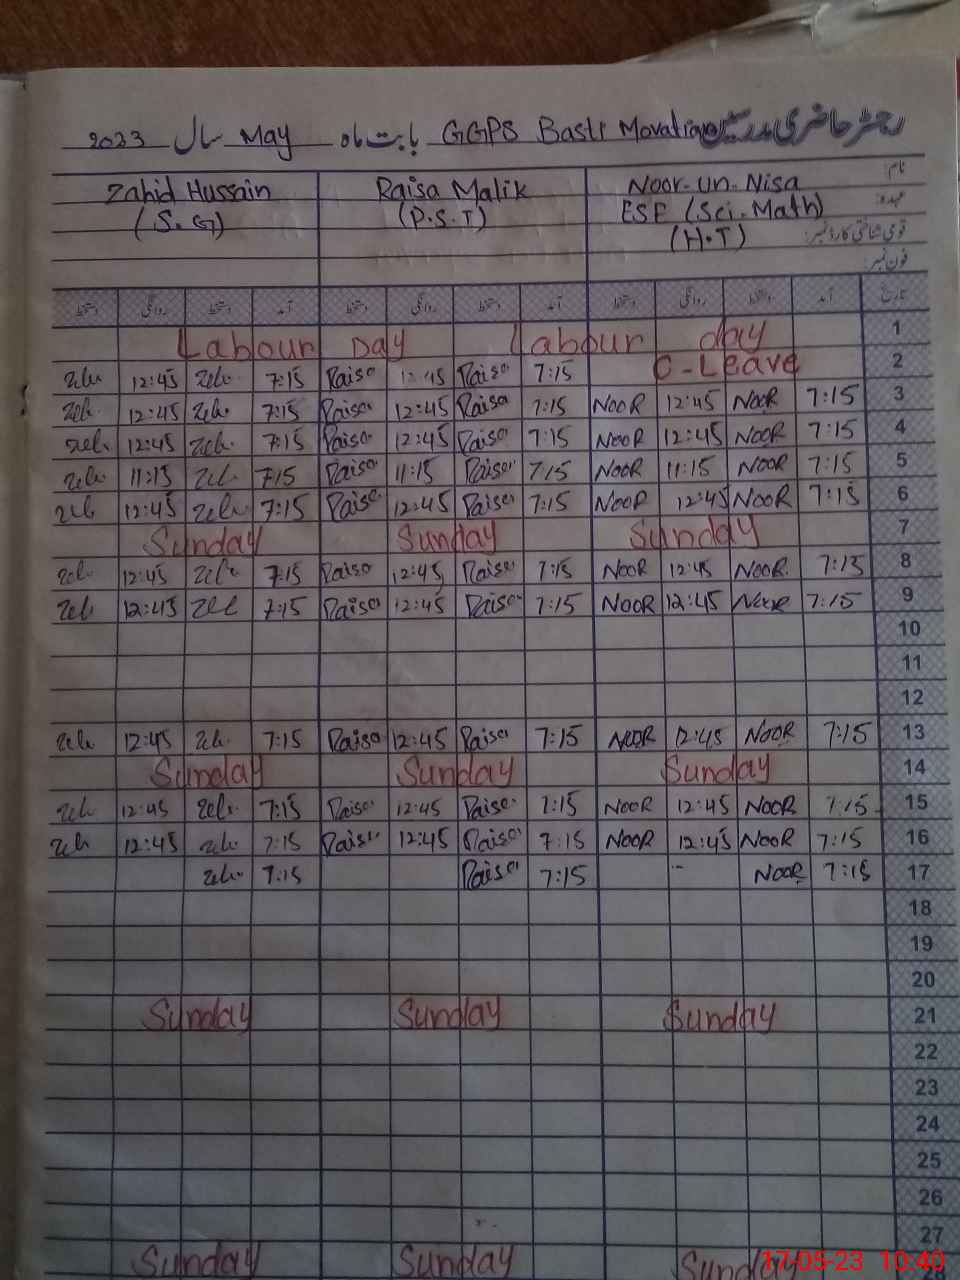 رجسٹر حاضری مدرسین GGPS Basti Movatian بابت ماہ May سال 2023
نام:
Zahid Hussain Raisa Malik Noor-un-Nisa
عہدہ:
(S.G) (P.S.T) ESE (Sci.Math)
قومی شناختی کارڈ نمبر:
(H.T)
فون نمبر:
دستخط روانگی دستخط آمد دستخط روانگی دستخط آمد دستخط روانگی دستخط آمد تاریخ
Labour Day Labour day 1
12:45 7:15 Raisa 12:45 Raisa 7:15 C-Leave 2
12:45 7:15 Raisa 12:45 Raisa 7:15 NOOR 12:45 NOOR 7:15 3
12:45 7:15 Raisa 12:45 Raisa 7:15 NOOR 12:45 NOOR 7:15 4
11:15 7:15 Raisa 11:15 Raisa 7:15 NOOR 11:15 NOOR 7:15 5
12:45 7:15 Raisa 12:45 Raisa 7:15 NOOR 12:45 NOOR 7:15 6
Sunday Sunday Sunday 7
12:45 7:15 Raisa 12:45 Raisa 7:15 NOOR 12:45 NOOR 7:15 8
12:45 7:15 Raisa 12:45 Raisa 7:15 NOOR 12:45 NOOR 7:15 9
10
11
12
12:45 7:15 Raisa 12:45 Raisa 7:15 NOOR 12:45 NOOR 7:15 13
Sunday Sunday Sunday 14
12:45 7:15 Raisa 12:45 Raisa 7:15 NOOR 12:45 NOOR 7:15 15
12:45 7:15 Raisa 12:45 Raisa 7:15 NOOR 12:45 NOOR 7:15 16
7:15 Raisa 7:15 NOOR 7:15 17
18
19
20
Sunday Sunday Sunday 21
22
23
24
25
26
27
Sunday Sunday Sunday
17-05-23 10:40